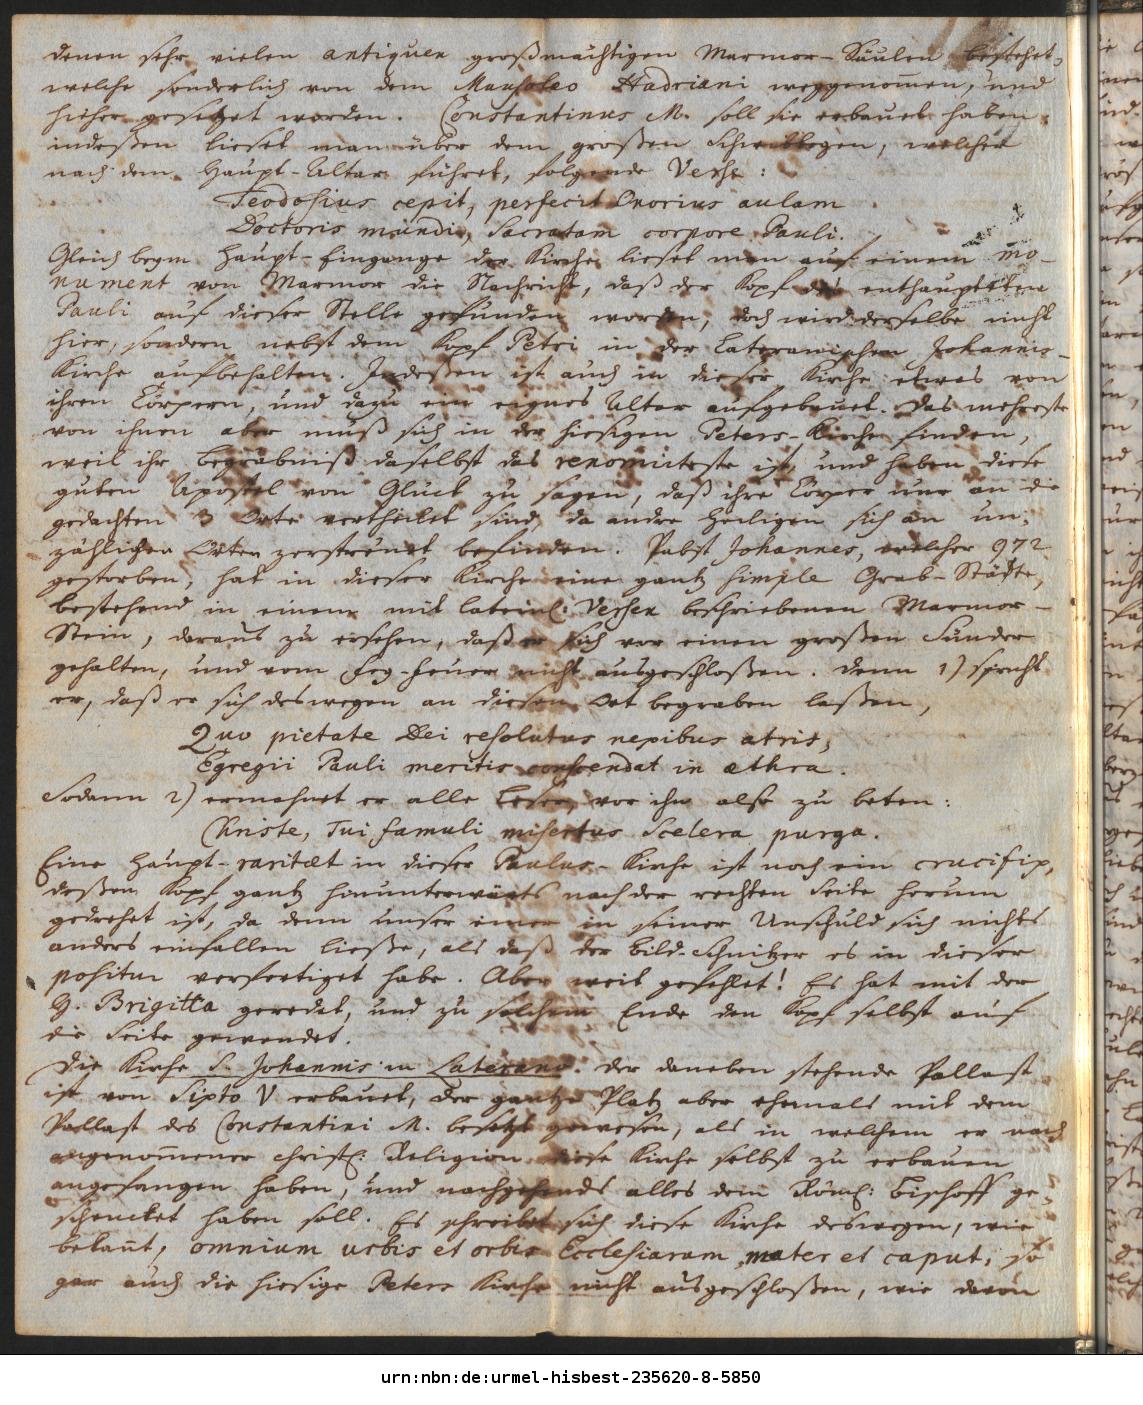 denen sehr vielen antiquen großmächtigen Marmor-Säulen bestehet,
welche sonderlich von dem Mausoleo Hadriani weggenom̄en, und
hieher gesetzet worden. Constantinus M. soll sie erbauet haben,
indeßen lieset man über dem großen Schwibbogen, welcher
nach dem Haupt-Altar führet, folgende Verse:
Teodosius cepit, perfecit Onorius aulam
Doctoris mundi, Sacratam corpore Pauli.
Gleich beym Haupt-Eingange der Kirche lieset man auf einem mo-
nument von Marmor die Nachricht, daß der Kopf des enthaupteten
Pauli auf dieser Stelle gefunden worden, doch wird derselbe nicht
hier, sondern nebst dem Kopf Petri in der Lateranischen Johannis-
Kirche aufbehalten. Indeßen ist auch in dieser Kirche etwas von
ihren Cörpern, und dazu ein eignes Altar aufgebauet. Das mehreste
von ihnen aber muß sich in der hiesigen Peters-Kirche finden,
weil ihr Begräbniß daselbst das renomirteste ist, und haben diese
guten Apostel von Glück zu sagen, daß ihre Cörper nur an die
gedachten 3 Orte vertheilet sind, da andre Heiligen sich an un-
zählichen Orten zerstreuet befinden. Pabst Johannes, welcher 972
gestorben, hat in dieser Kirche eine gantz simple Grab-Städte,
bestehend in einem mit lateinl: Versen beschriebenen Marmor-
Stein, daraus zu ersehen, daß er sich vor einen großen Sünder
gehalten, und vom Feg-Feuer nicht ausgeschloßen. denn 1) spricht
er, daß er sich deswegen an diesen Ort begraben laßen,
Quo pietate Dei resolutus nexibus atris,
Egregii Pauli meritis conscendat in æthra.
Sodann 2) ermahnet er alle Leser, vor ihn also zu beten:
Christe, Tui famuli misertus Scelera purga.
Eine Haupt-raritæt in dieser Paulus-Kirche ist noch ein crucifix,
deßen Kopf gantz hinunterwärts nach der rechten Seite herum
gedrehet ist, da denn unser einer in seiner Unschuld sich nichts
anders einfallen ließe, als daß der Bild-Schnitzer es in dieser
positur verfertiget habe. Aber weit gefehlet! Es hat mit der
H. Brigitta geredet, und zu solchem Ende den Kopf selbst auf
die Seite gewendet.
Die Kirche S. Johannis in Laterano. der daneben stehende Pallast
ist von Sixto V erbauet, der gantze Platz aber ehemals mit dem
Pallast des Constantini M. besetzt gewesen, als in welchem er nach
angenom̄ener christl: Religion diese Kirche selbst zu erbauen
angefangen haben, und nachgehends alles dem Röml: Bischoff ge-
schencket haben soll. Es schreibet sich diese Kirche deswegen, wie
bekañt, omnium urbis et orbis Ecclesiarum mater et caput, so
gar auch die hiesige Peters Kirche nicht ausgeschloßen, wie davon
urn:nbn:de:urmel-hisbest-235620-8-5850